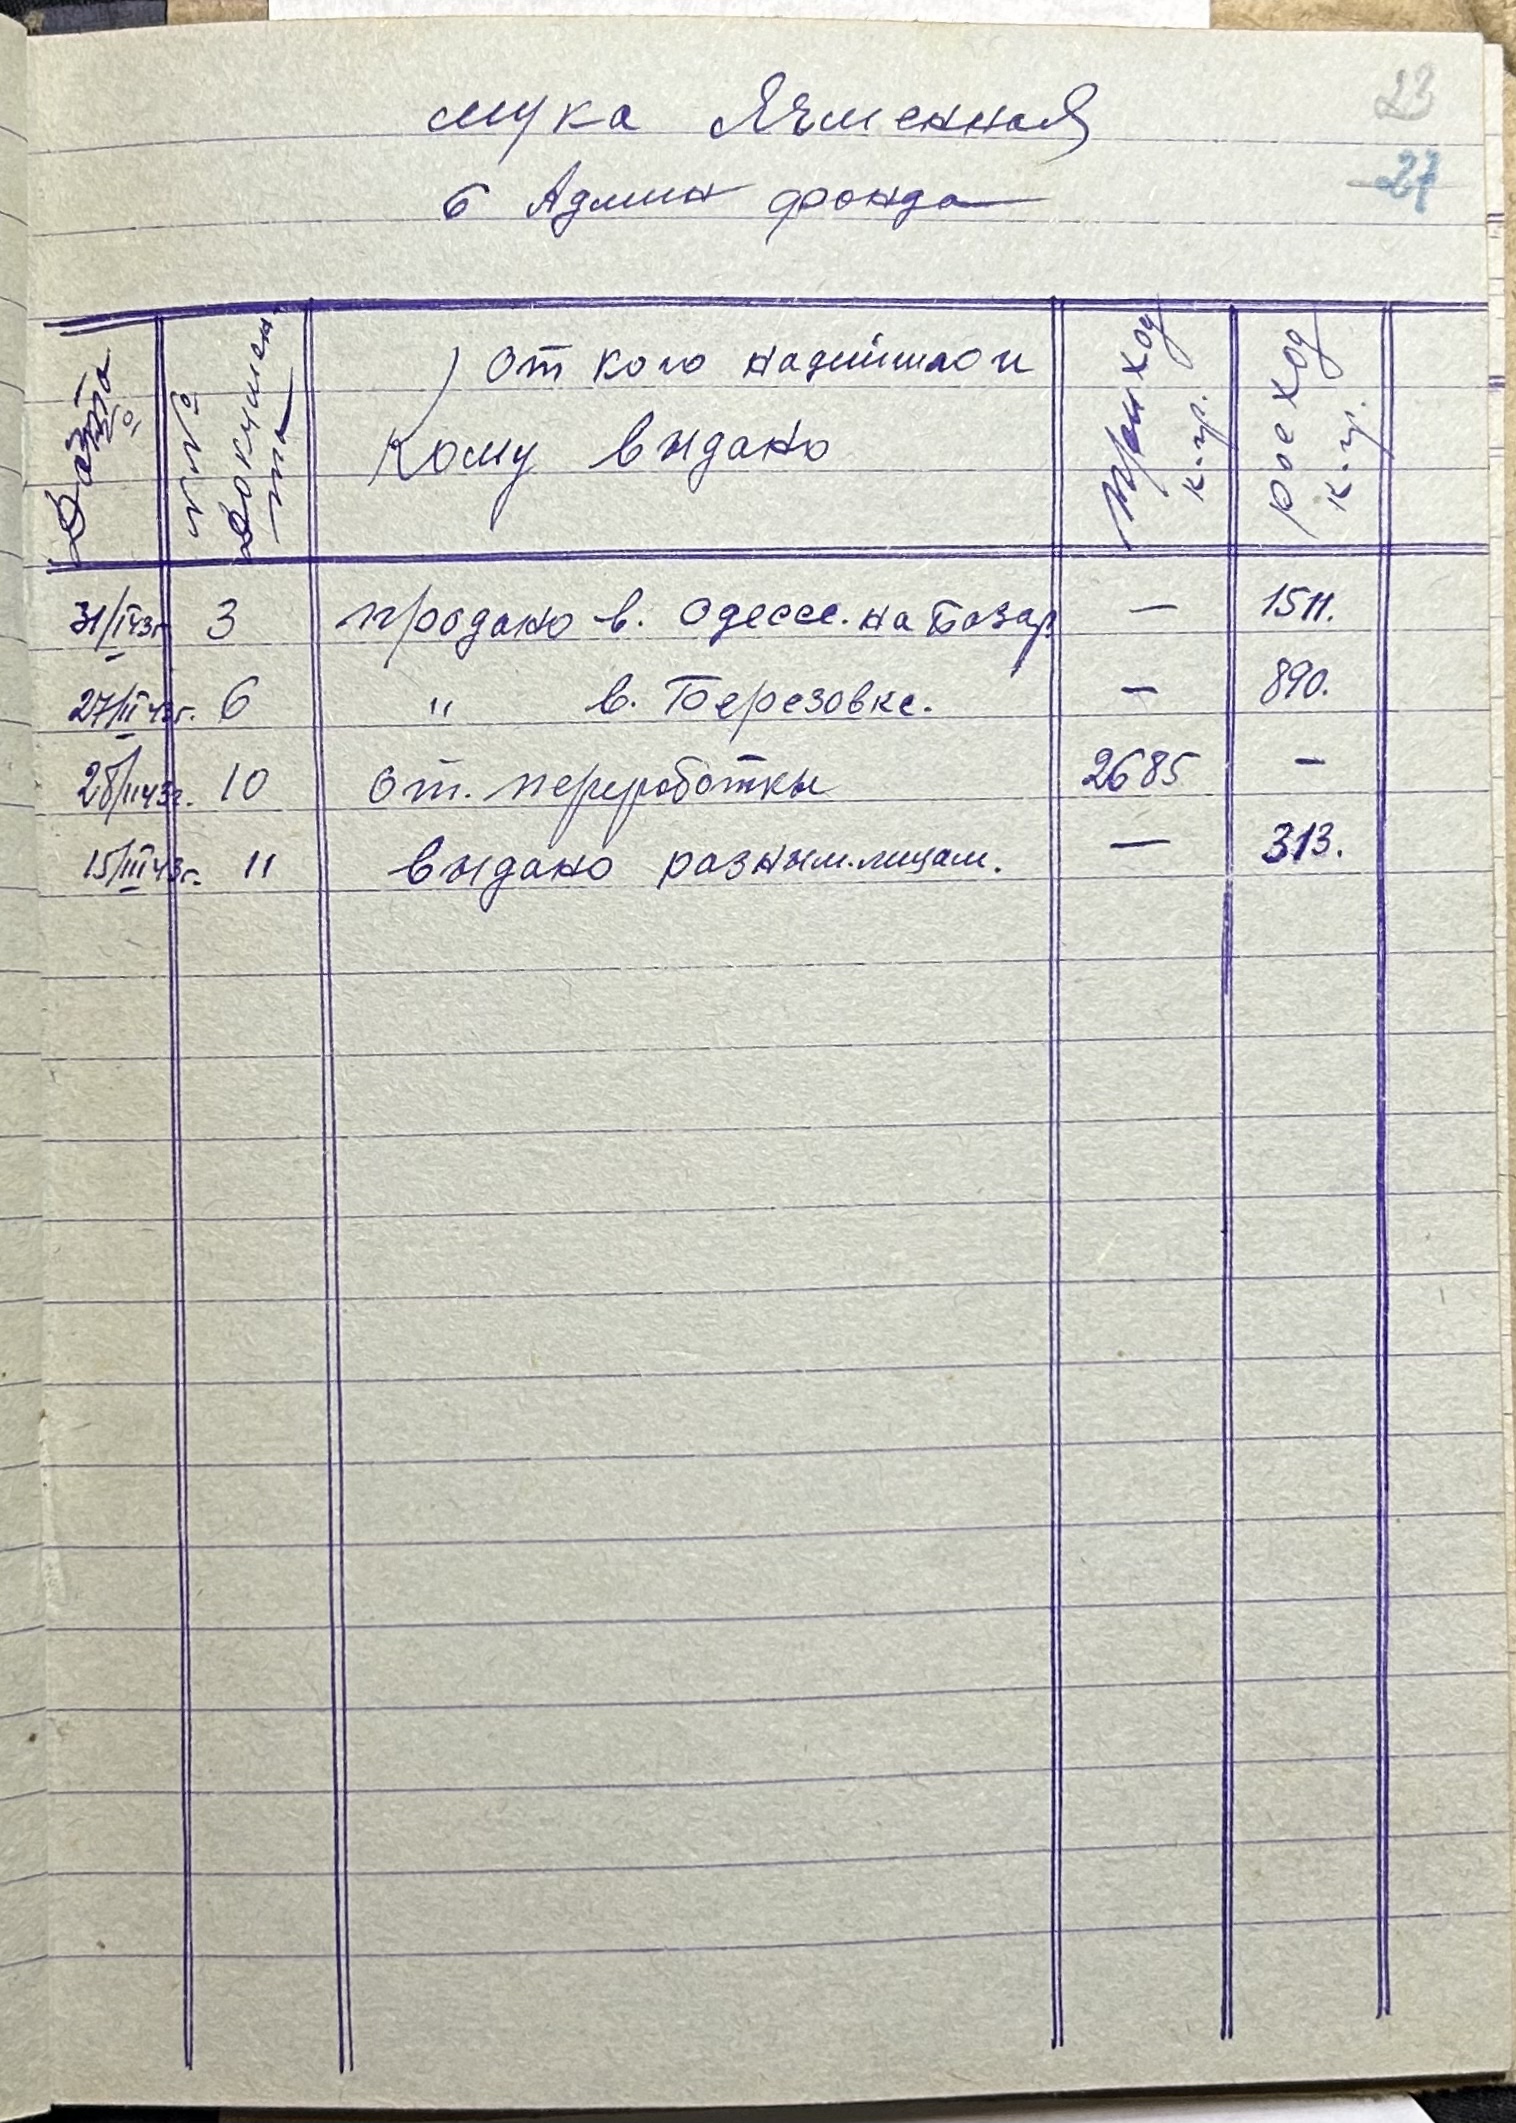 23
27
мука Ячменная
6 Админ фонда
Дата
№№ Документа
От кого надийшло и
Кому видано
Приход к-гр.
расход к-гр.
31/I 43г. 3 продано в. Одессе. на базар — 1511.
27/II 43г. 6 " в. Березовке. — 890.
28/II 43г. 10 От. переработки 2685 —
15/III 43г. 11 видано разным. лицам. — 313.